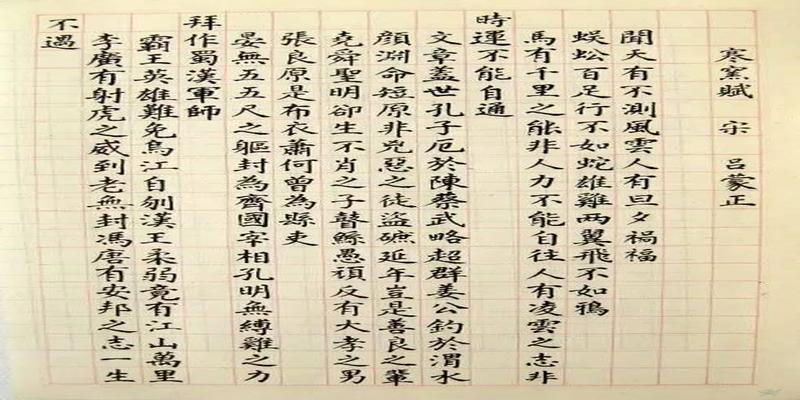 寒窯賦 宋 呂蒙正
聞天有不測風雲人有旦夕禍福
蜈蚣百足行不如蛇雄雞兩翼飛不如鴉
馬有千里之能非人力不能自往人有凌雲之志非
時運不能自通
文章蓋世孔子厄於陳蔡武略超群姜公釣於渭水
顏淵命短原非兇惡之徒盜蹠延年豈是善良之輩
堯舜聖明卻生不肖之子瞽鯀愚頑反有大孝之男
張良原是布衣蕭何曾為縣吏
晏無五五尺之軀封為齊國宰相孔明無縛雞之力
拜作蜀漢軍師
霸王英雄難免烏江自刎漢王柔弱竟有江山萬里
李廣有射虎之威到老無封馮唐有安邦之志一生
不遇